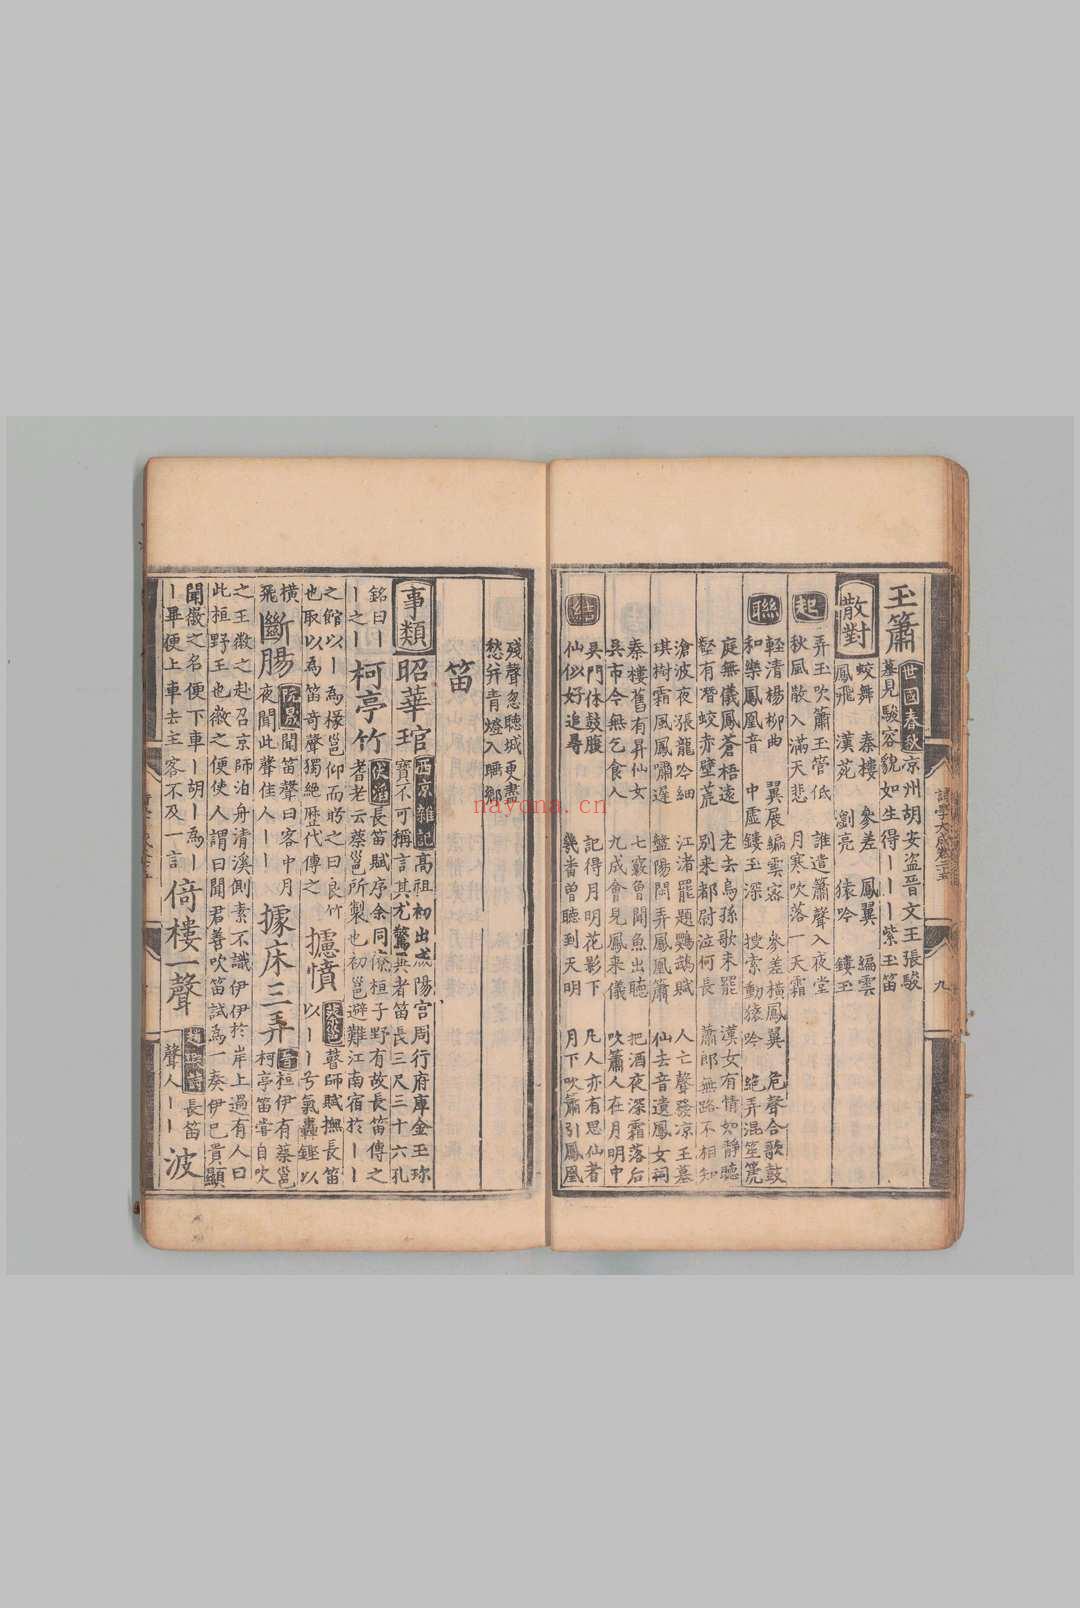 玉簫 世國春秋 京州胡安盜晉文王張駿
墓見駿容貌如生得ーー紫玉笛
散對 蛟舞 秦樓 參差 鳳翼 編雲
鳳飛 漢苑 瀏亮 猿吟 鏤玉
起 弄玉吹簫玉管低 誰遣簫聲入夜堂
秋風散入滿天悲 月寒吹落一天霜
聯 輕清楊柳曲 翼展編雲密 參差橫鳳翼 危聲合歌鼓
和樂鳳凰音 中虛鏤玉深 搜索動猿吟 絶弄混笙箎
庭無儀鳳蒼梧遠 老去烏孫歌未罷 漢女有情如靜聽
壑有潛蛟赤壁荒 別來都尉泣何長 蕭郎無路不相知
滄波夜張龍吟細 江渚罷題鸚鵡賦 人亡聲發凉王墓
琪樹霜風鳳嘯遲 盤陽閒弄鳳凰簫 仙去音遺鳳女祠
秦樓舊有昇仙女 七竅曾聞魚出聽 把酒夜深霜落后
吳市今無乞食人 九成會見鳳來儀 吹簫人在月明中
結 吳門休鼓腹 記得月明花影下 凡人亦有思仙者
仙似好追尋 幾畨曽聽到天明 月下吹簫引鳳凰
詩學大成卷之五 九
殘聲忽聽城更盡
愁并青燈入睡鄉
笛
事類 昭華琯 西京雜記 高祖初出咸陽宫周行府庫金玉珎
寶不可稱言其尤驚異者笛長三尺三十六孔
銘曰ーーー之ー 柯亭竹 伏滔 長笛賦序余同僚桓子野有故長笛傳之
耆老云蔡邕所製也初邕避難江南宿於ー
之館以ー為椽邕仰而眄之曰良竹
也取以為笛奇聲獨絶歴代傳之 攄憤 蔡邕 瞽師賦撫長笛
以ーー兮氣轟鏗以
橫飛 斷膓 阮晟 聞笛聲曰客中月
夜聞此聲佳人ー 據床三弄 晉 桓伊有蔡邕
柯亭笛嘗自吹
之王徽之赴召京師泊舟清溪側素不識伊伊於岸上過有人曰
此桓野王也徽之便使人謂曰聞君善吹笛試為一奏伊已貴顯
聞徽之名便下車ー胡ー為ー
ー畢便上車去主客不及一言 倚樓一聲 趙嘏詩 長笛
一聲人ーー 波
nayona.cn